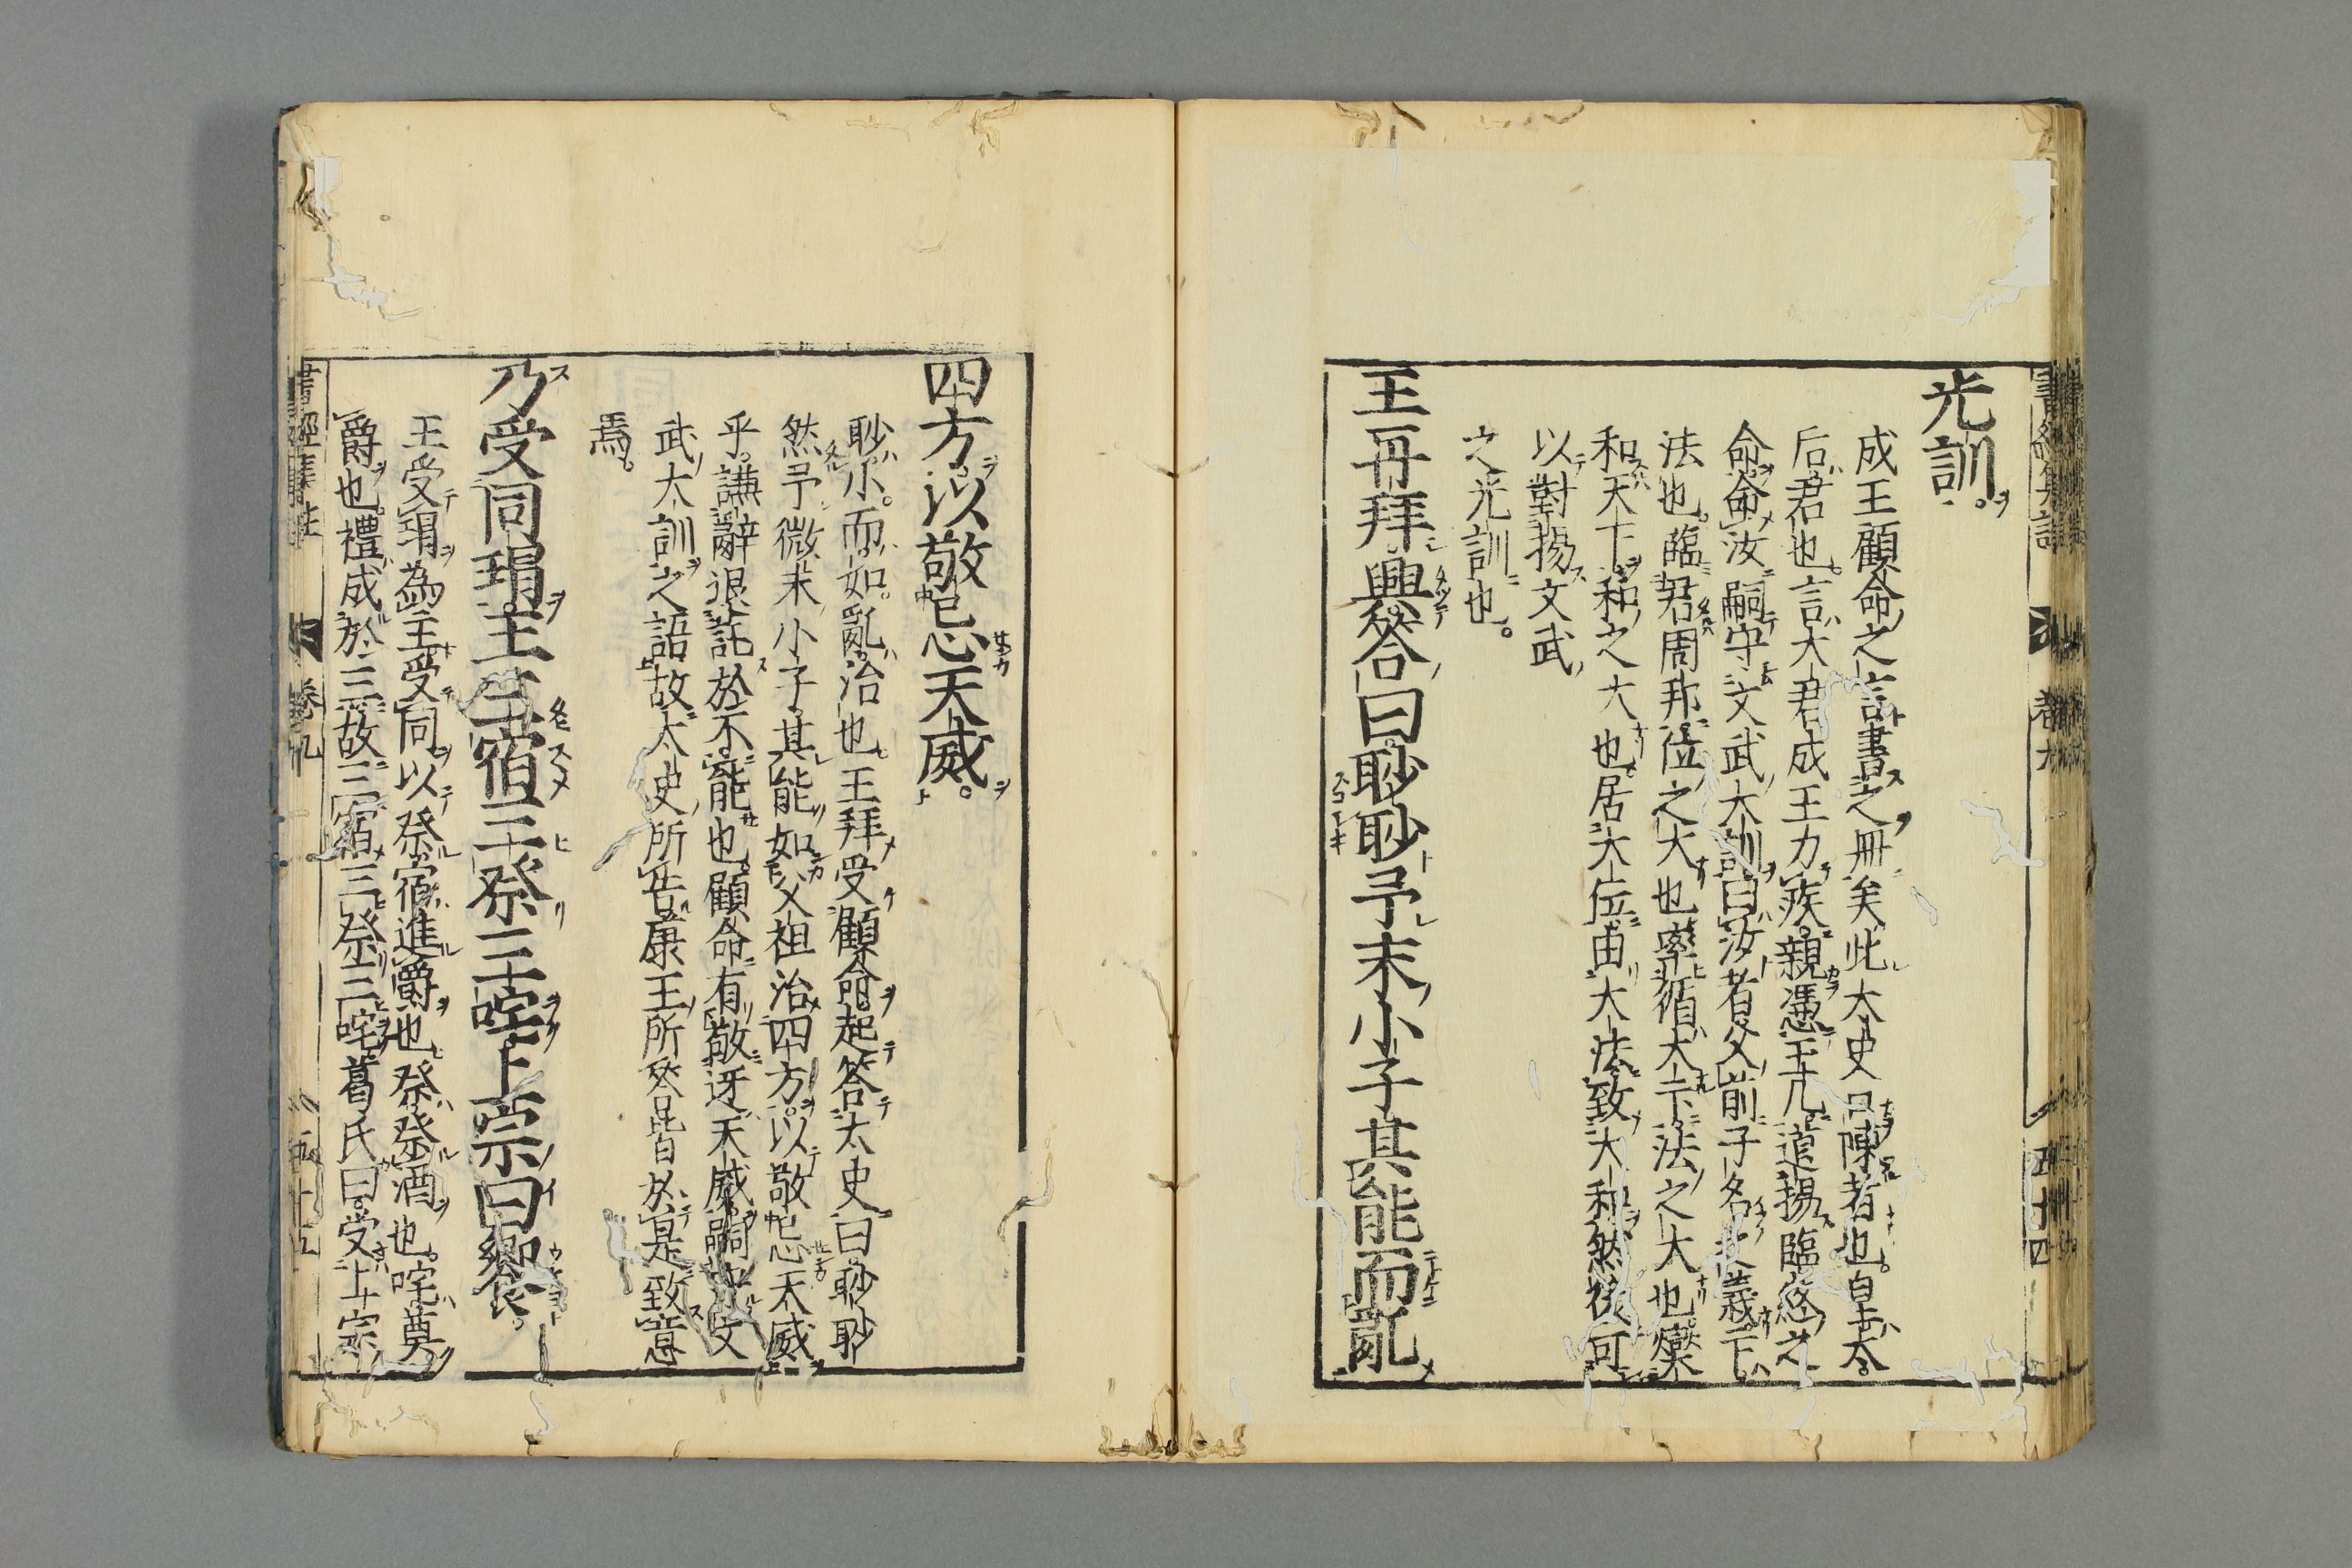 光訓。
成王顧命之言書之冊矣此太史口陳者也。皇大。
后君也。言大君成王力疾。親憑玉几道揚臨終之
命命汝嗣守文武大訓曰汝者父前子名之義卞
法也。臨君周邦位之大也率循大卞法之大也燮
和天下和之大也居大位由大法致大和然後可
以對揚文武
之光訓也。
王再拜興答曰眇眇予末小子其能而亂
四方。以敬忌天威。
眇小。而如。亂治也。王拜受顧命起答太史曰。眇眇
然予微末小子。其能如父祖治四方。以敬忌天威
乎。謙辭退託於不能也。顧命有敬迓天威。嗣守文
武大訓之語故太史所告康王所答皆於是致意
焉。
乃受同瑁。王三宿三祭三咤上宗曰饗。
王受瑁為主受同以祭。宿進爵也祭祭酒也。咤奠
爵也。禮成於三故三宿三祭三咤葛氏曰。受上宗
書經集註 卷九 五十四
書經集註 卷九 五十五